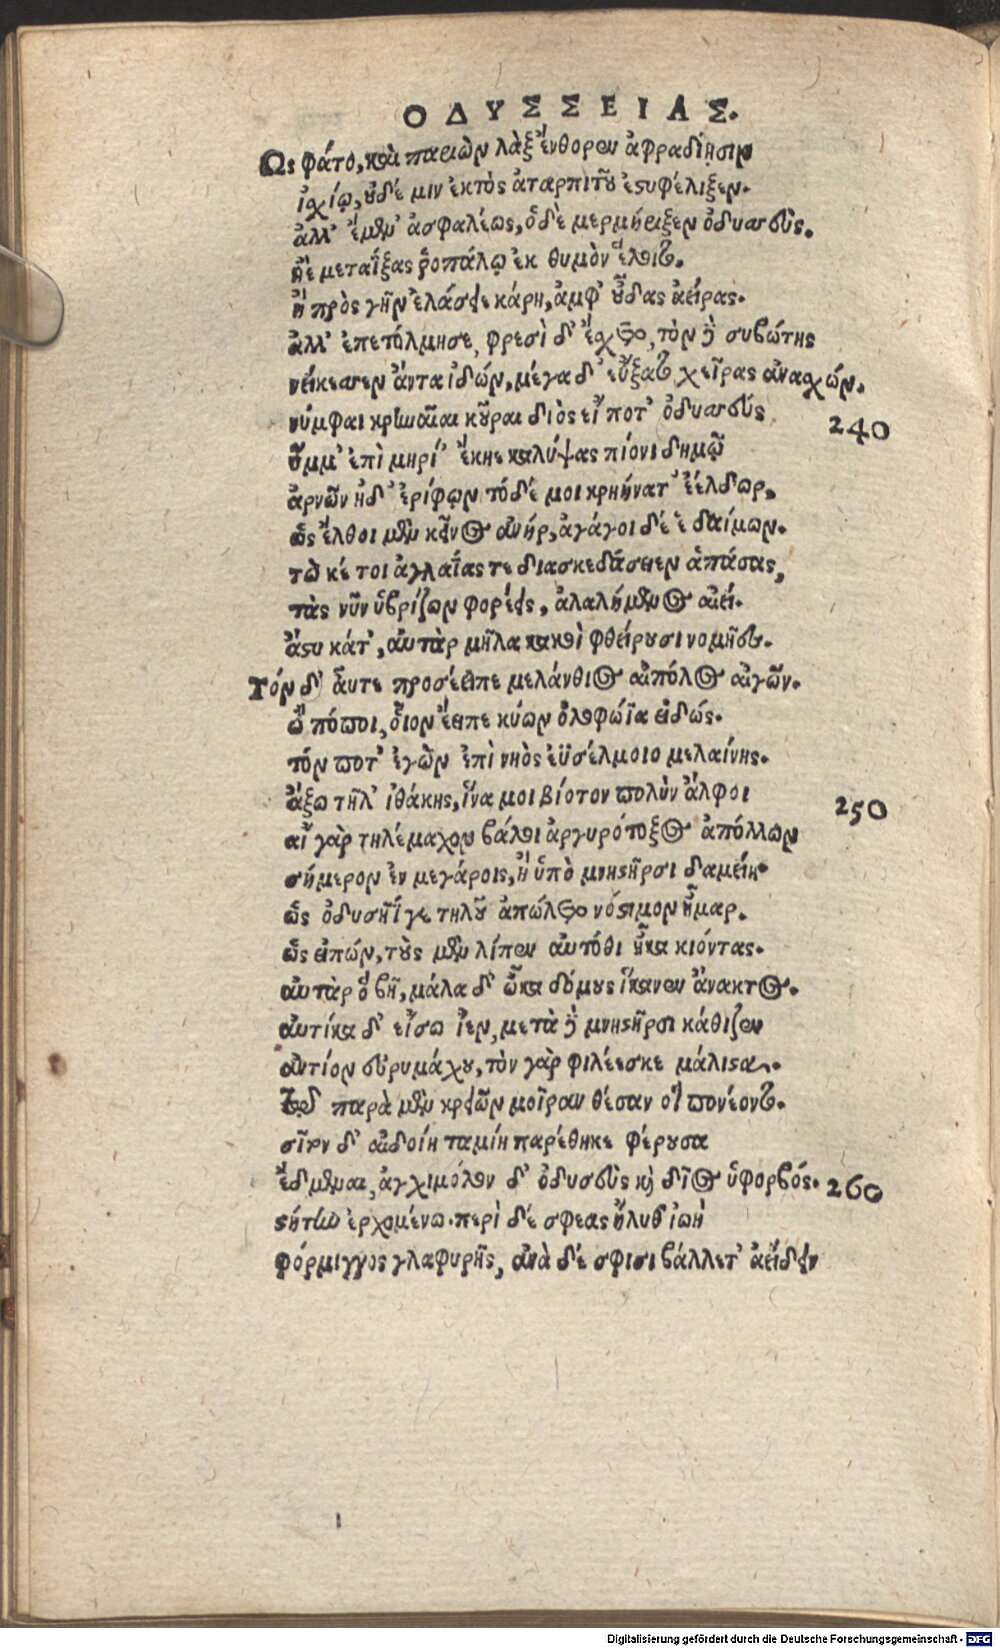 ΟΔΥΣΣΕΙΑΣ.
Ὣς φάτο, καὶ παριὼν λὰξ ἔνθορεν ἀφραδίῃσιν
ἰχίῳ, οὐδέ μιν ἐκτὸς ἀταρπιτοῦ ἐστυφέλιξεν.
ἀλλ' ἔμεν' ἀσφαλέως, ὁ δὲ μερμήριξεν ὀδυσσεὺς.
ἠὲ μεταΐξας ῥοπάλῳ ἐκ θυμὸν ἕλοιτο.
ἢ πρὸς γῆν ἐλάσειε κάρη, ἀμφ' οὖδας ἀείρας.
ἀλλ' ἐπετόλμησε, φρεσὶ δ' ἔσχετο, τὸν δὲ συβώτης
νείκεσσεν ἄντα ἰδών, μέγα δ' εὔξατο χεῖρας ἀνασχών.
νύμφαι κρηναῖαι κοῦραι διὸς εἴ ποτ' ὀδυσσεύς 240
ὔμμ' ἐπὶ μηρί' ἔκηε καλύψας πίονι δημῷ
ἀρνῶν ἠδ' ἐρίφων τόδέ μοι κρηήνατ' ἐέλδωρ,
ὡς ἔλθοι μὲν κεῖνος ἀνήρ, ἀγάγοι δέ ἑ δαίμων.
τῶ κέ τοι ἀγλαΐας τε διασκεδάσειεν ἁπάσας,
τὰς νῦν ὑβρίζων φορέεις, ἀλαλήμενος αἰεί.
ἄστυ κάτ', αὐτὰρ μῆλα κακοὶ φθείρουσι νομῆες.
Τόν δ' αὖτε προσέειπε μελάνθιος αἰπόλος αἰγῶν.
ὢ πόποι, οἷον ἔειπε κύων ὀλοφώϊα εἰδώς.
τόν ποτ' ἐγὼν ἐπὶ νηὸς ἐϋσέλμοιο μελαίνης.
ἄξω τῆλ' ἰθάκης, ἵνα μοι βίοτον πολὺν ἄλφοι 250
αἲ γὰρ τηλέμαχον βάλοι ἀργυρότοξος ἀπόλλων
σήμερον ἐν μεγάροις, ἢ ὑπὸ μνηστῆρσι δαμείη.
ὡς ὀδυσῆΐ γε τηλοῦ ἀπώλετο νόστιμον ἦμαρ.
ὣς εἰπών, τοὺς μὲν λίπεν αὐτόθι ἦκα κιόντας.
αὐτὰρ ὁ βῆ, μάλα δ' ὦκα δόμους ἵκανεν ἄνακτος.
αὐτίκα δ' εἴσω ἴεν, μετὰ δὲ μνηστῆρσι κάθιζεν
ἀντίον εὐρυμάχου, τὸν γὰρ φιλέεσκε μάλιστα.
τῷ παρὰ μὲν κρειῶν μοῖραν θέσαν οἳ πονέοντο.
σῖτον δ' αἰδοίη ταμίη παρέθηκε φέρουσα
ἔδμεναι, ἀγχιμόλον δ' ὀδυσεὺς καὶ δῖος ὑφορβός. 260
στήτην ἐρχομένω. περὶ δέ σφεας ἤλυθ' ἰωὴ
φόρμιγγος γλαφυρῆς, ἀνὰ δέ σφισι βάλλετ' ἀείδειν
Digitalisierung gefördert durch die Deutsche Forschungsgemeinschaft - DFG